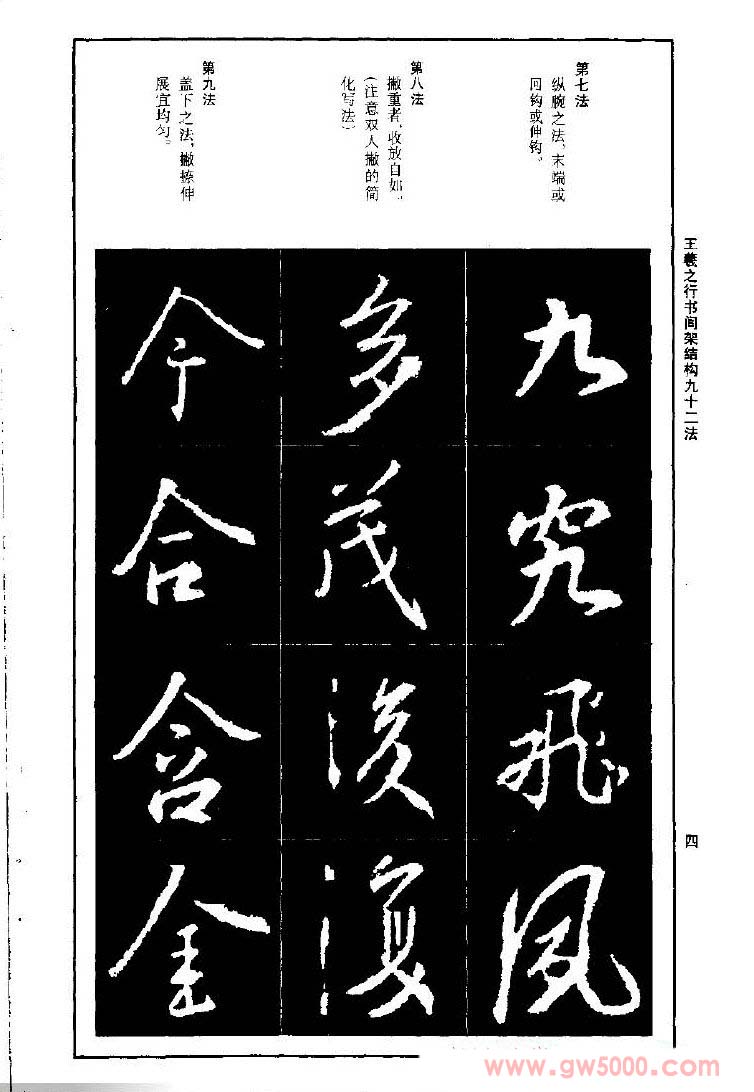 王羲之行书间架结构九十二法
四
第七法
纵腕之法,末端或
回钩或伸钩。
第八法
撇重者,收放自如。
(注意双人撇的简
化写法)
第九法
盖下之法,撇捺伸
展宜均匀。
九究飛風
多茂後復
今合含金
www.gw5000.com